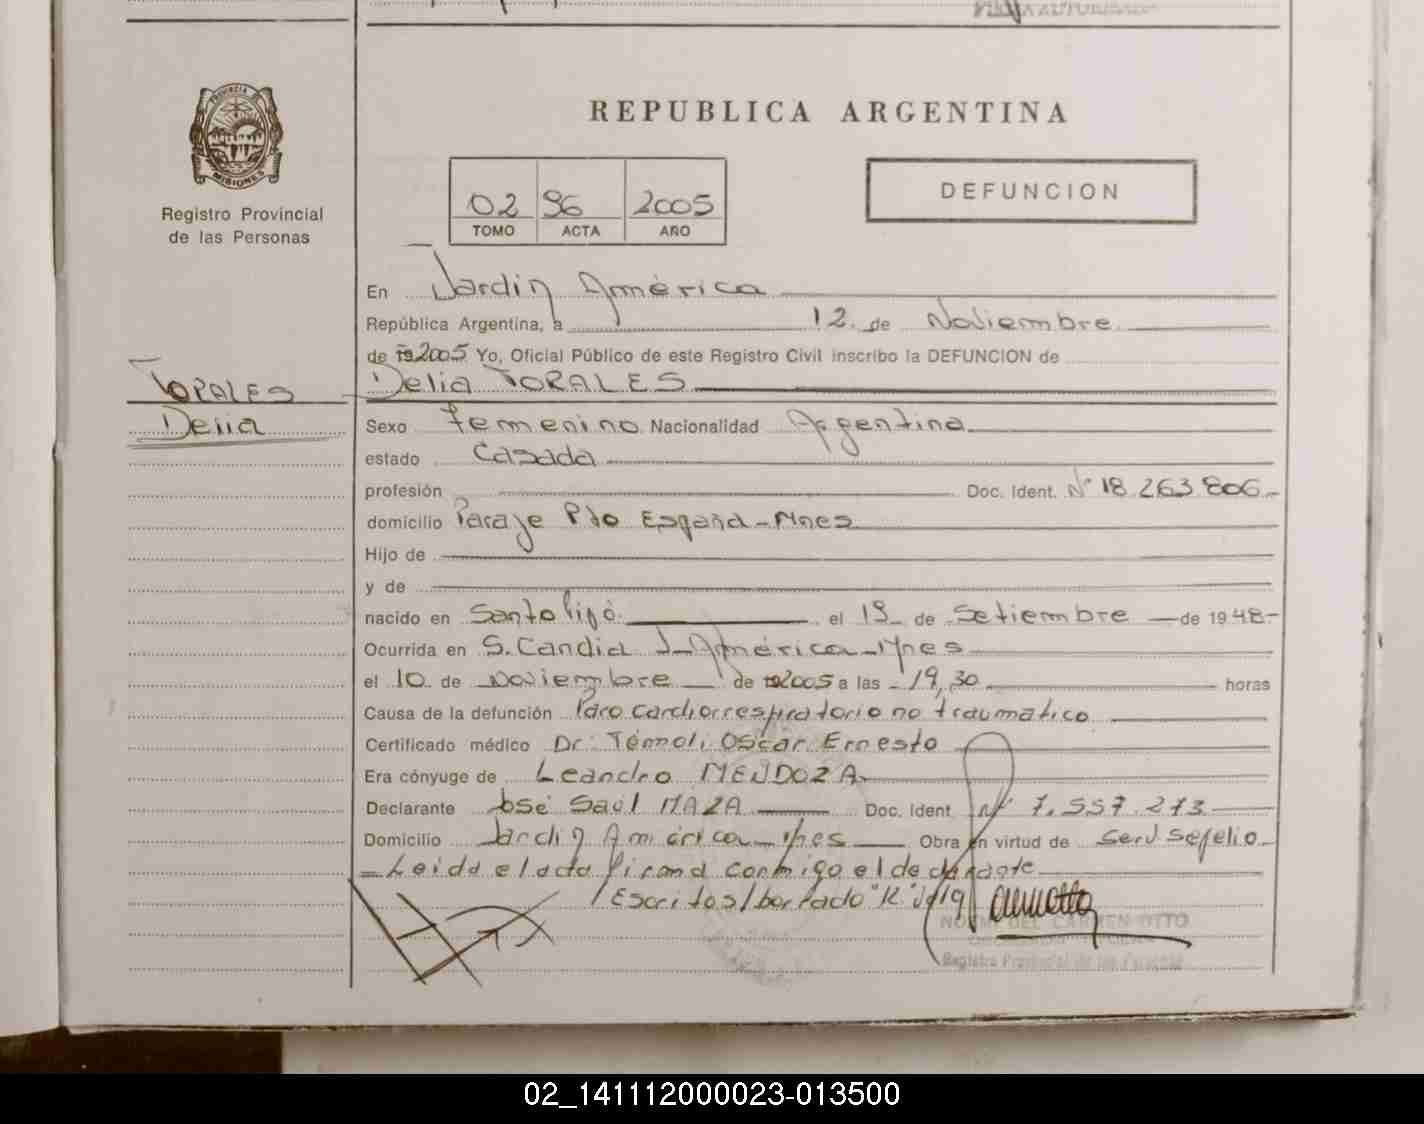 PROVINCIA DE
MISIONES
Registro Provincial
de las Personas
REPUBLICA ARGENTINA
02 96 2005
TOMO ACTA AÑO
DEFUNCION
En Jardin América
República Argentina, a 12 de Noviembre
de 19 2005 Yo, Oficial Público de este Registro Civil inscribo la DEFUNCION de
TORALES
Delia TORALES
Delia
Sexo Femenino Nacionalidad Argentina
estado Casada
profesión Doc. Ident. Nº 18.263.806
domicilio Paraje Pto España - Mnes
Hijo de
y de
nacido en Santo Pipó el 19 de Setiembre de 1948
Ocurrida en S. Candia J. América - Mnes
el 10 de Noviembre de 19 2005 a las 19,30 horas
Causa de la defunción Paro cardiorrespiratorio no traumatico
Certificado médico Dr: Témoli Oscar Ernesto
Era cónyuge de Leandro MENDOZA
Declarante José Saúl MAZA Doc. Ident Nº 7.557.273
Domicilio Jardin América - Mnes Obra en virtud de Serv Sepelio
Leida el acta firma conmigo el declarante
Escritos/borrado "R"
NORMA DEL CARMEN OTTO
Registro Provincial de las Personas
02_141112000023-013500